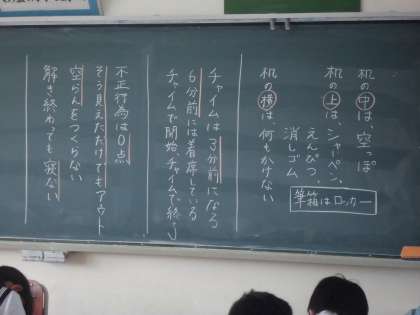 机の中は、空っぽ
机の上は、シャーペン、
えんぴつ、
消しゴム
筆箱はロッカー
机の横は、何もかけない
チャイムは3分前になる
6分前には着席している
チャイムで開始、チャイムで終了
不正行為は0点
そう見えただけでもアウト
空らんをつくらない
解き終わっても寝ない